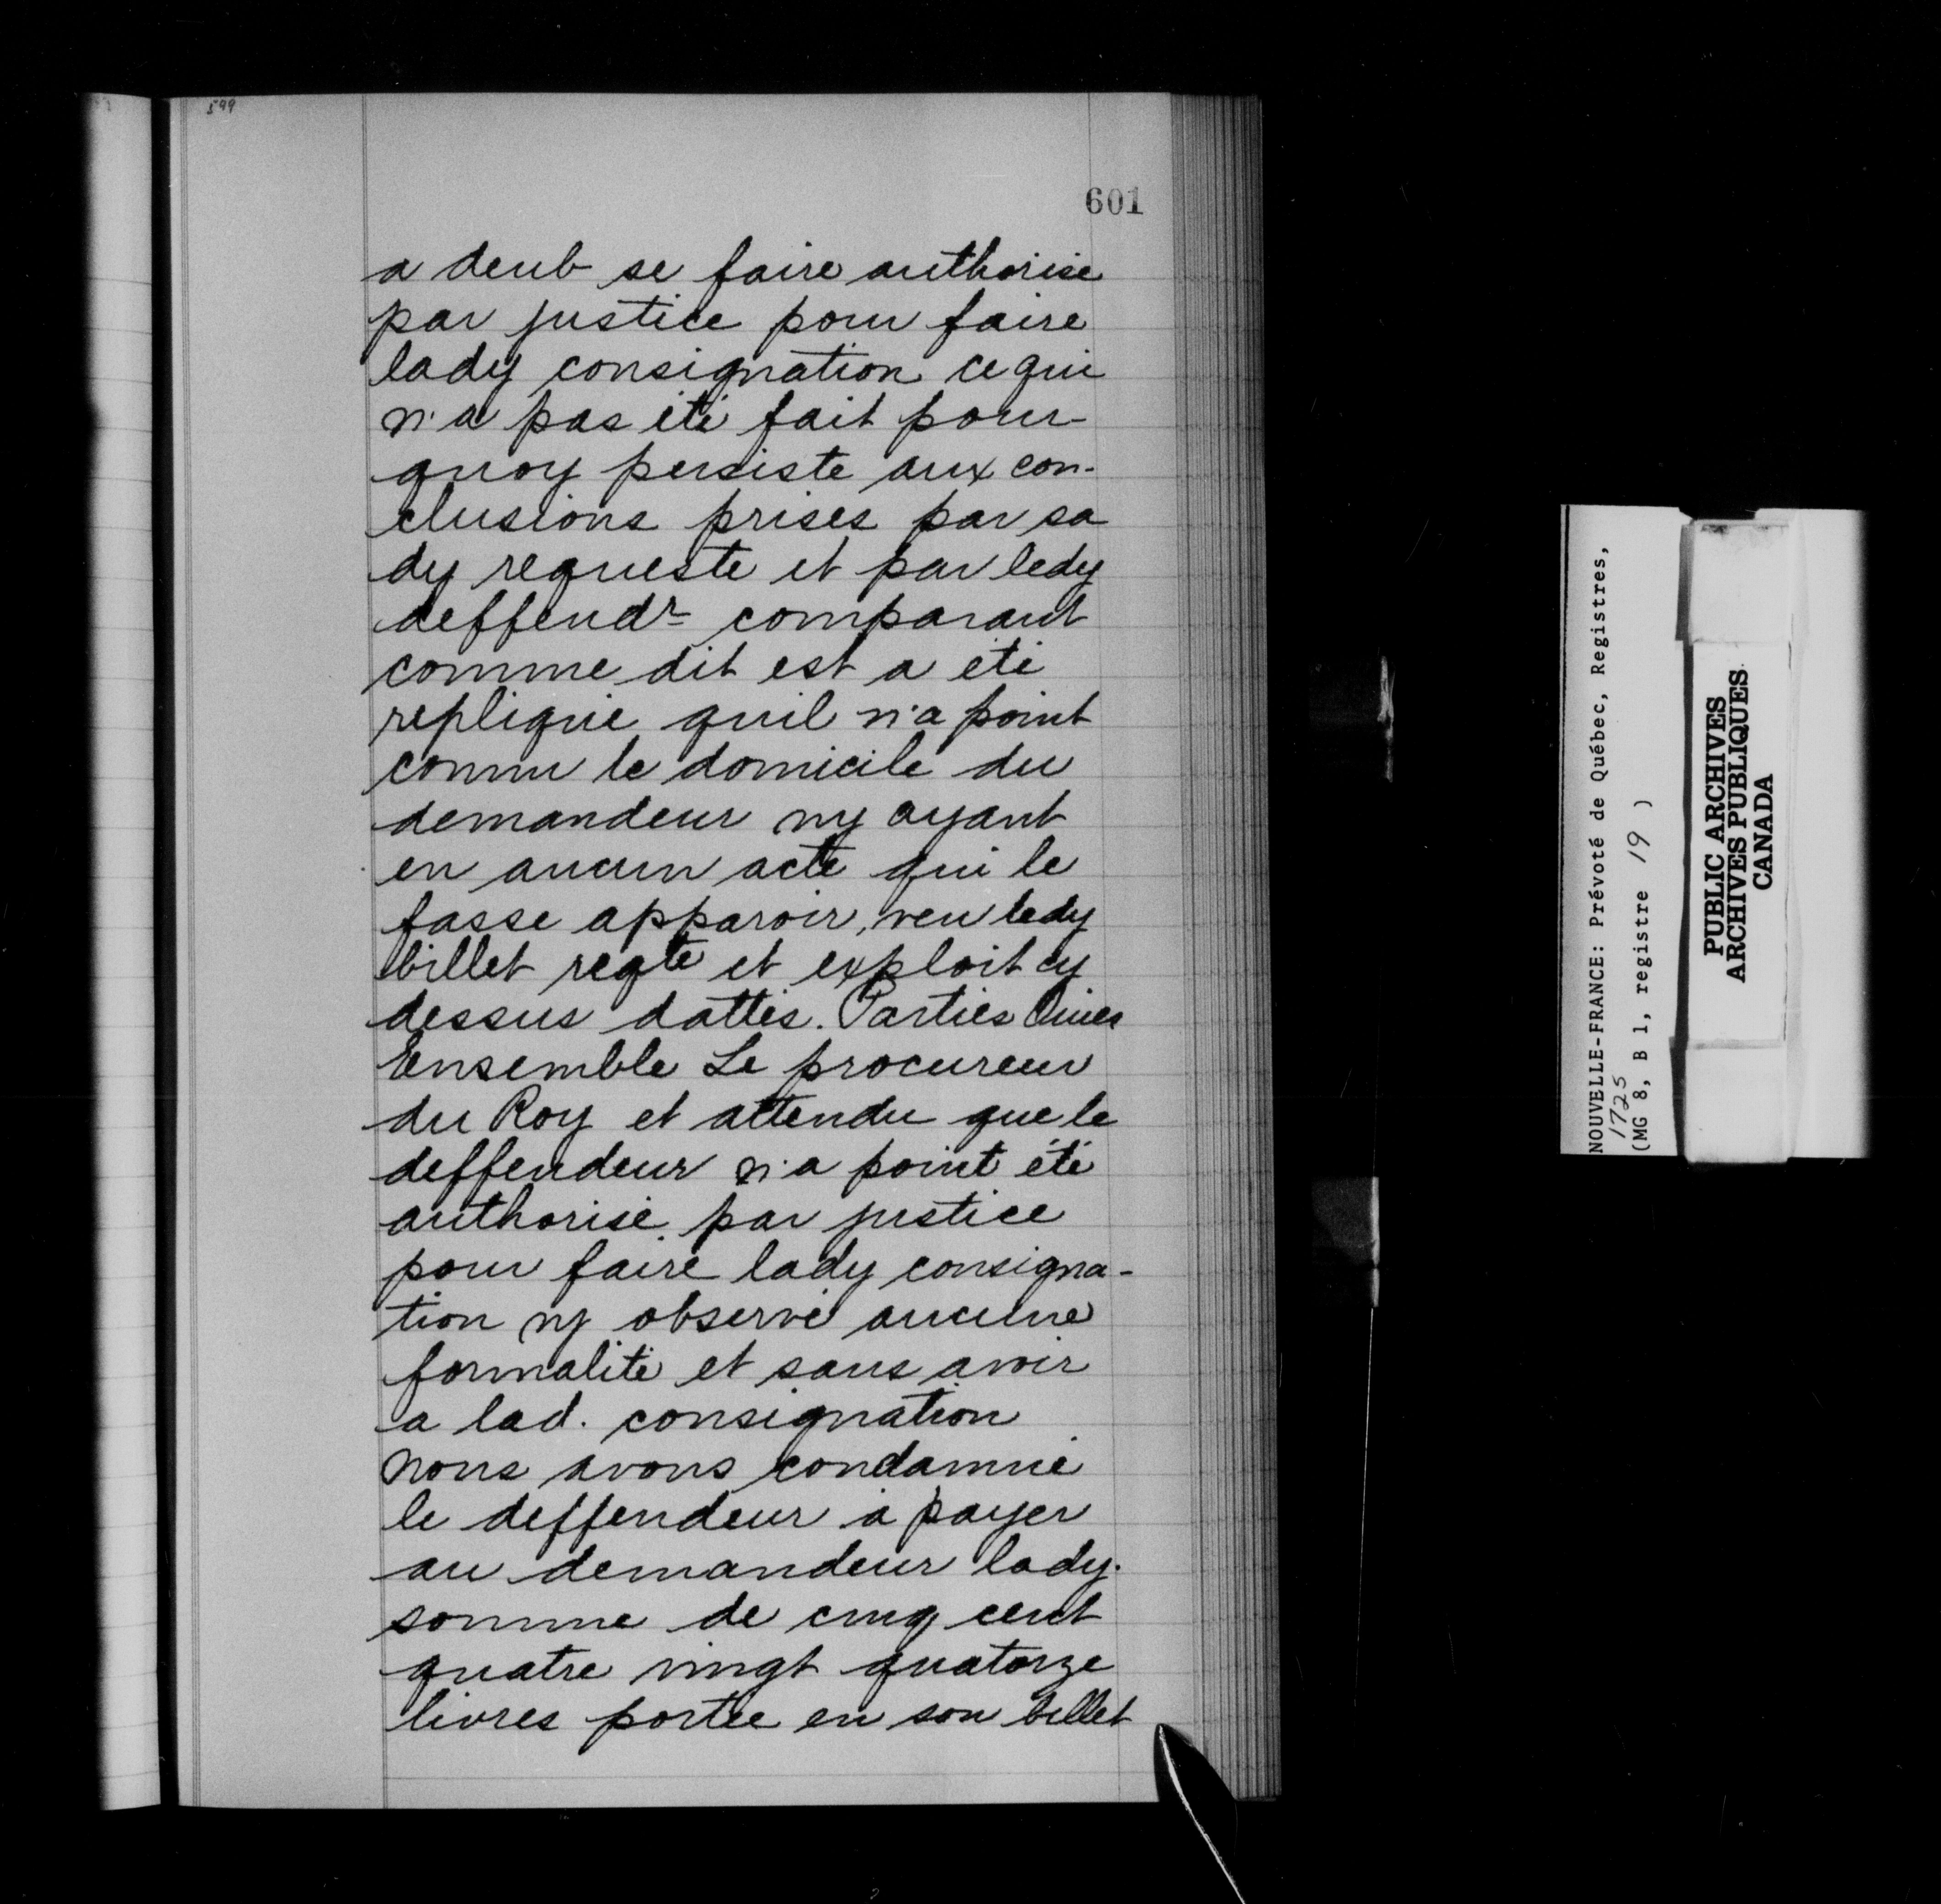 599
601
a deub se faire authorisé
par justice pour faire
lady consignation ce qui
n'a pas été fait pour-
quoy persiste aux con-
clusions prises par sa
dy requeste et par ledy
deffendr comparant
comme dit est a été
repliqué quil n'a point
connu le domicile du
demandeur ny ayant
en aucun acte qui le
fasse apparoir, veu ledy
billet reqte et exploit cy
dessus dattés. Parties Ouies
Ensemble Le procureur
du Roy et attendu que le
deffendeur n'a point été
authorisé par justice
pour faire lady consigna-
tion ny observé aucune
formalité et sans avoir
a lad. consignation
Nous avons condamné
le deffendeur à payer
au demandeur lady.
somme de cinq cent
quatre vingt quatorze
livres portée en son billet
NOUVELLE-FRANCE: Prévoté de Québec, Registres,
1725
(MG 8, B 1, registre 19 )
PUBLIC ARCHIVES
ARCHIVES PUBLIQUES
CANADA